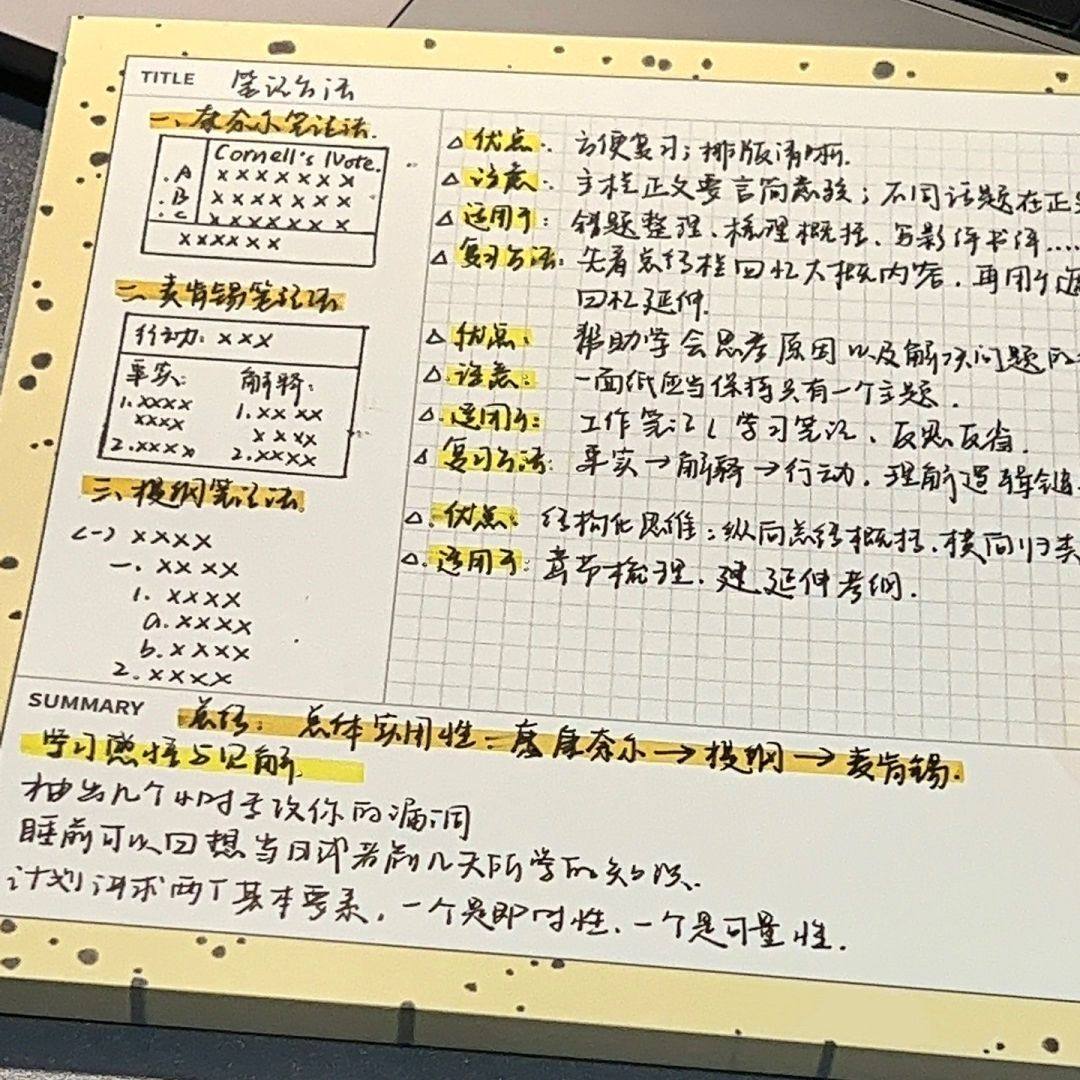 TITLE 笔记方法
一、康奈尔笔记法.
Cornell's Note.
.A xxxxxxx
.B xxxxxxx
.C xxxxxxx
xxxxxx
△优点: 方便复习; 排版清晰.
△注意: 主栏正文要言简意赅; 不同话题在正
△适用于: 错题整理、梳理概括、写影评书评……
△复习方法: 先看总结栏回忆大概内容, 再用
回忆延伸.
二、麦肯锡笔记法
行动: xxx
事实: 解释:
1.xxxx 1.xxxx
xxxx xxxx
2.xxxx 2.xxxx
△优点: 帮助学会思考原因以及解决问题的
△注意: 一面纸应当保持只有一个主题.
△适用于: 工作笔记、学习笔记、反思反省.
△复习方法: 事实→解释→行动, 理解逻辑链
三、提纲笔记法
(一) xxxx
一. xxxx
1. xxxx
a. xxxx
b. xxxx
2. xxxx
△.优点: 结构化思维: 纵向总结概括、横向归类
△.适用于: 章节梳理、建延伸考纲.
SUMMARY 总结: 总体实用性: 康奈尔→提纲→麦肯锡.
学习感悟与见解
抽出几个小时专攻你的漏洞
睡前可以回想当日或者前几天所学的知识.
计划讲求两个基本要素, 一个是即时性、一个是可量性.